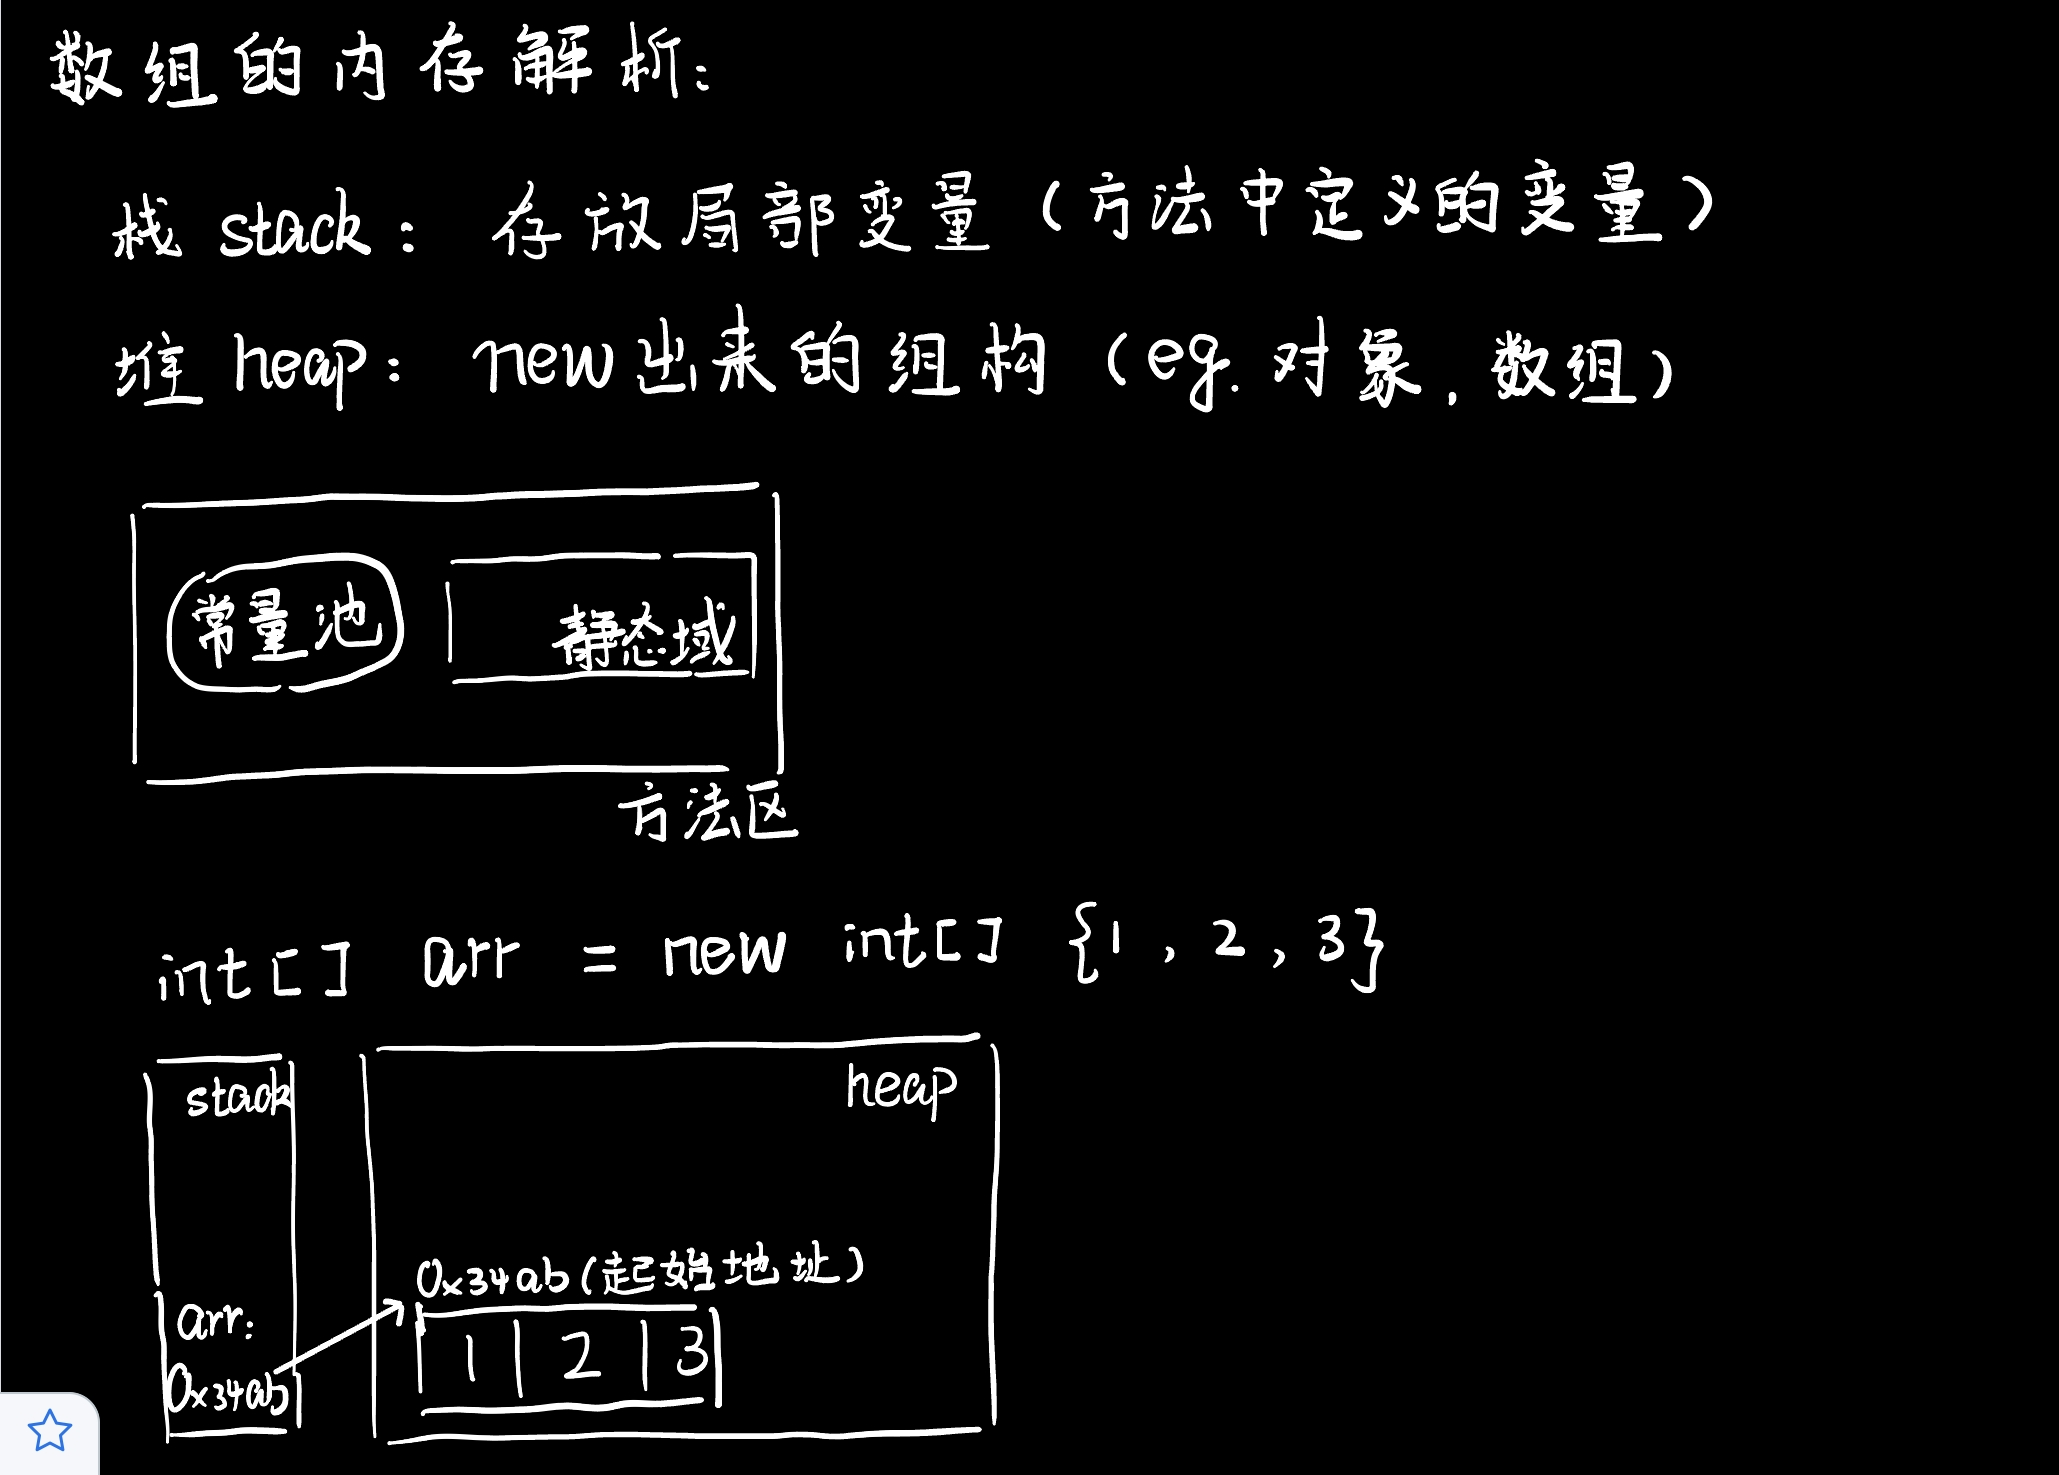 数组的内存解析:
栈 stack: 存放局部变量 (方法中定义的变量)
堆 heap: new出来的组构 (eg. 对象, 数组)
常量池 静态域
方法区
int[] arr = new int[] {1, 2, 3}
stack heap
0x34ab (起始地址)
arr: 1 2 3
0x34ab